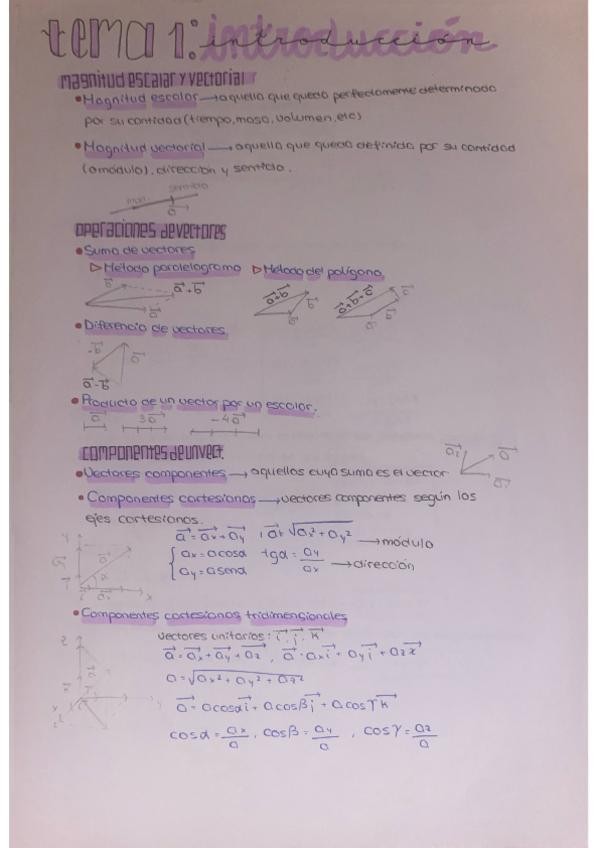 tema 1: introducción
magnitud escalar y vectorial
• Magnitud escalar → aquella que queda perfectamente determinada
por su cantidad (tiempo, masa, volumen, etc)
• Magnitud vectorial → aquella que queda definida por su cantidad
(o módulo), dirección y sentido.
sentido
a⃗
operaciones de vectores
• Suma de vectores
▷ Método paralelogramo ▷ Método del polígono
b⃗ a⃗+b⃗ a⃗+b⃗ b⃗
a⃗
• Diferencia de vectores
-b⃗ a⃗
a⃗-b⃗
• Producto de un vector por un escalar.
a⃗ 3a⃗ -4a⃗
componentes de un vect.
• Vectores componentes → aquellos cuya suma es el vector
• Componentes cartesianas → vectores componentes según los
ejes cartesianos.
a⃗ = a⃗x + a⃗y , a = √ax² + ay² → módulo
{ ax = a cosα tgα = ay/ax → dirección
ay = a senα
• Componentes cartesianas tridimensionales
vectores unitarios: i⃗, j⃗, k⃗
a⃗ = a⃗x + a⃗y + a⃗z , a⃗ = ax i⃗ + ay j⃗ + az k⃗
a = √ax² + ay² + az²
a⃗ = a cosα i⃗ + a cosβ j⃗ + a cosγ k⃗
cosα = ax/a , cosβ = ay/a , cosγ = az/a